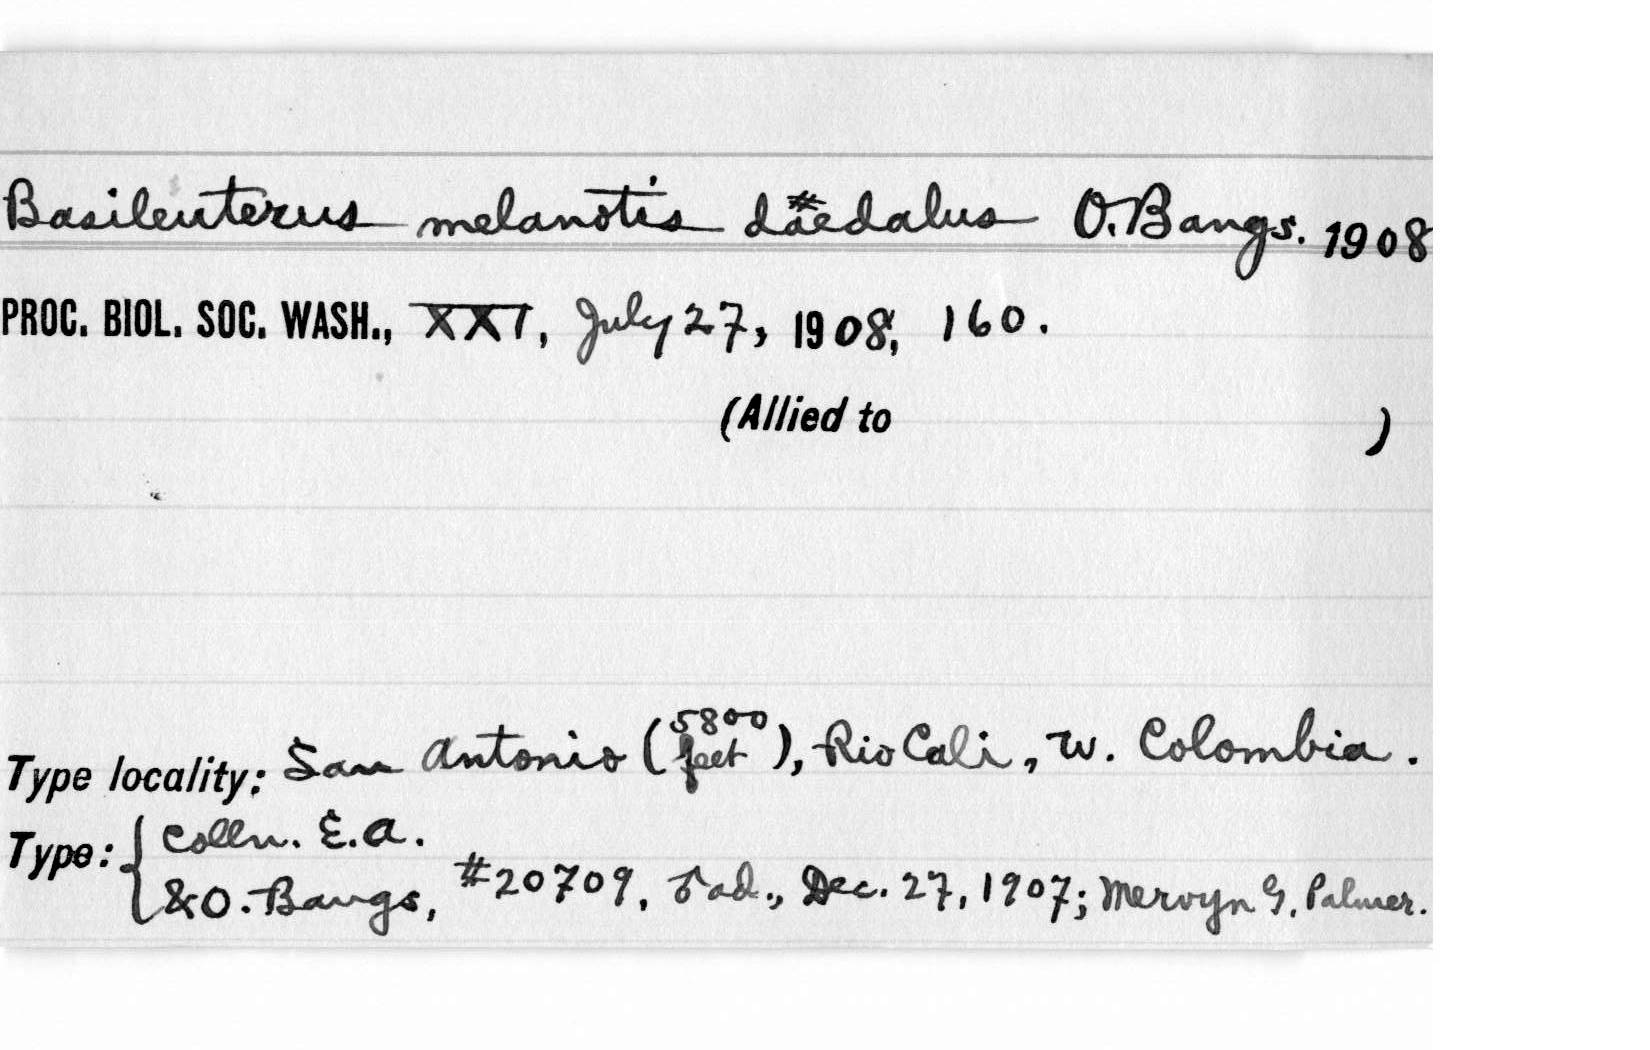 Basileuterus melanotis daedalus O. Bangs. 1908
PROC. BIOL. SOC. WASH., XXI, July 27, 1908, 160.
(Allied to )
Type locality: San Antonio (5800 feet), Rio Cali, W. Colombia.
Type: { Colln. E.A.
& O. Bangs, #20709, ad., Dec. 27, 1907; Mervyn G. Palmer.